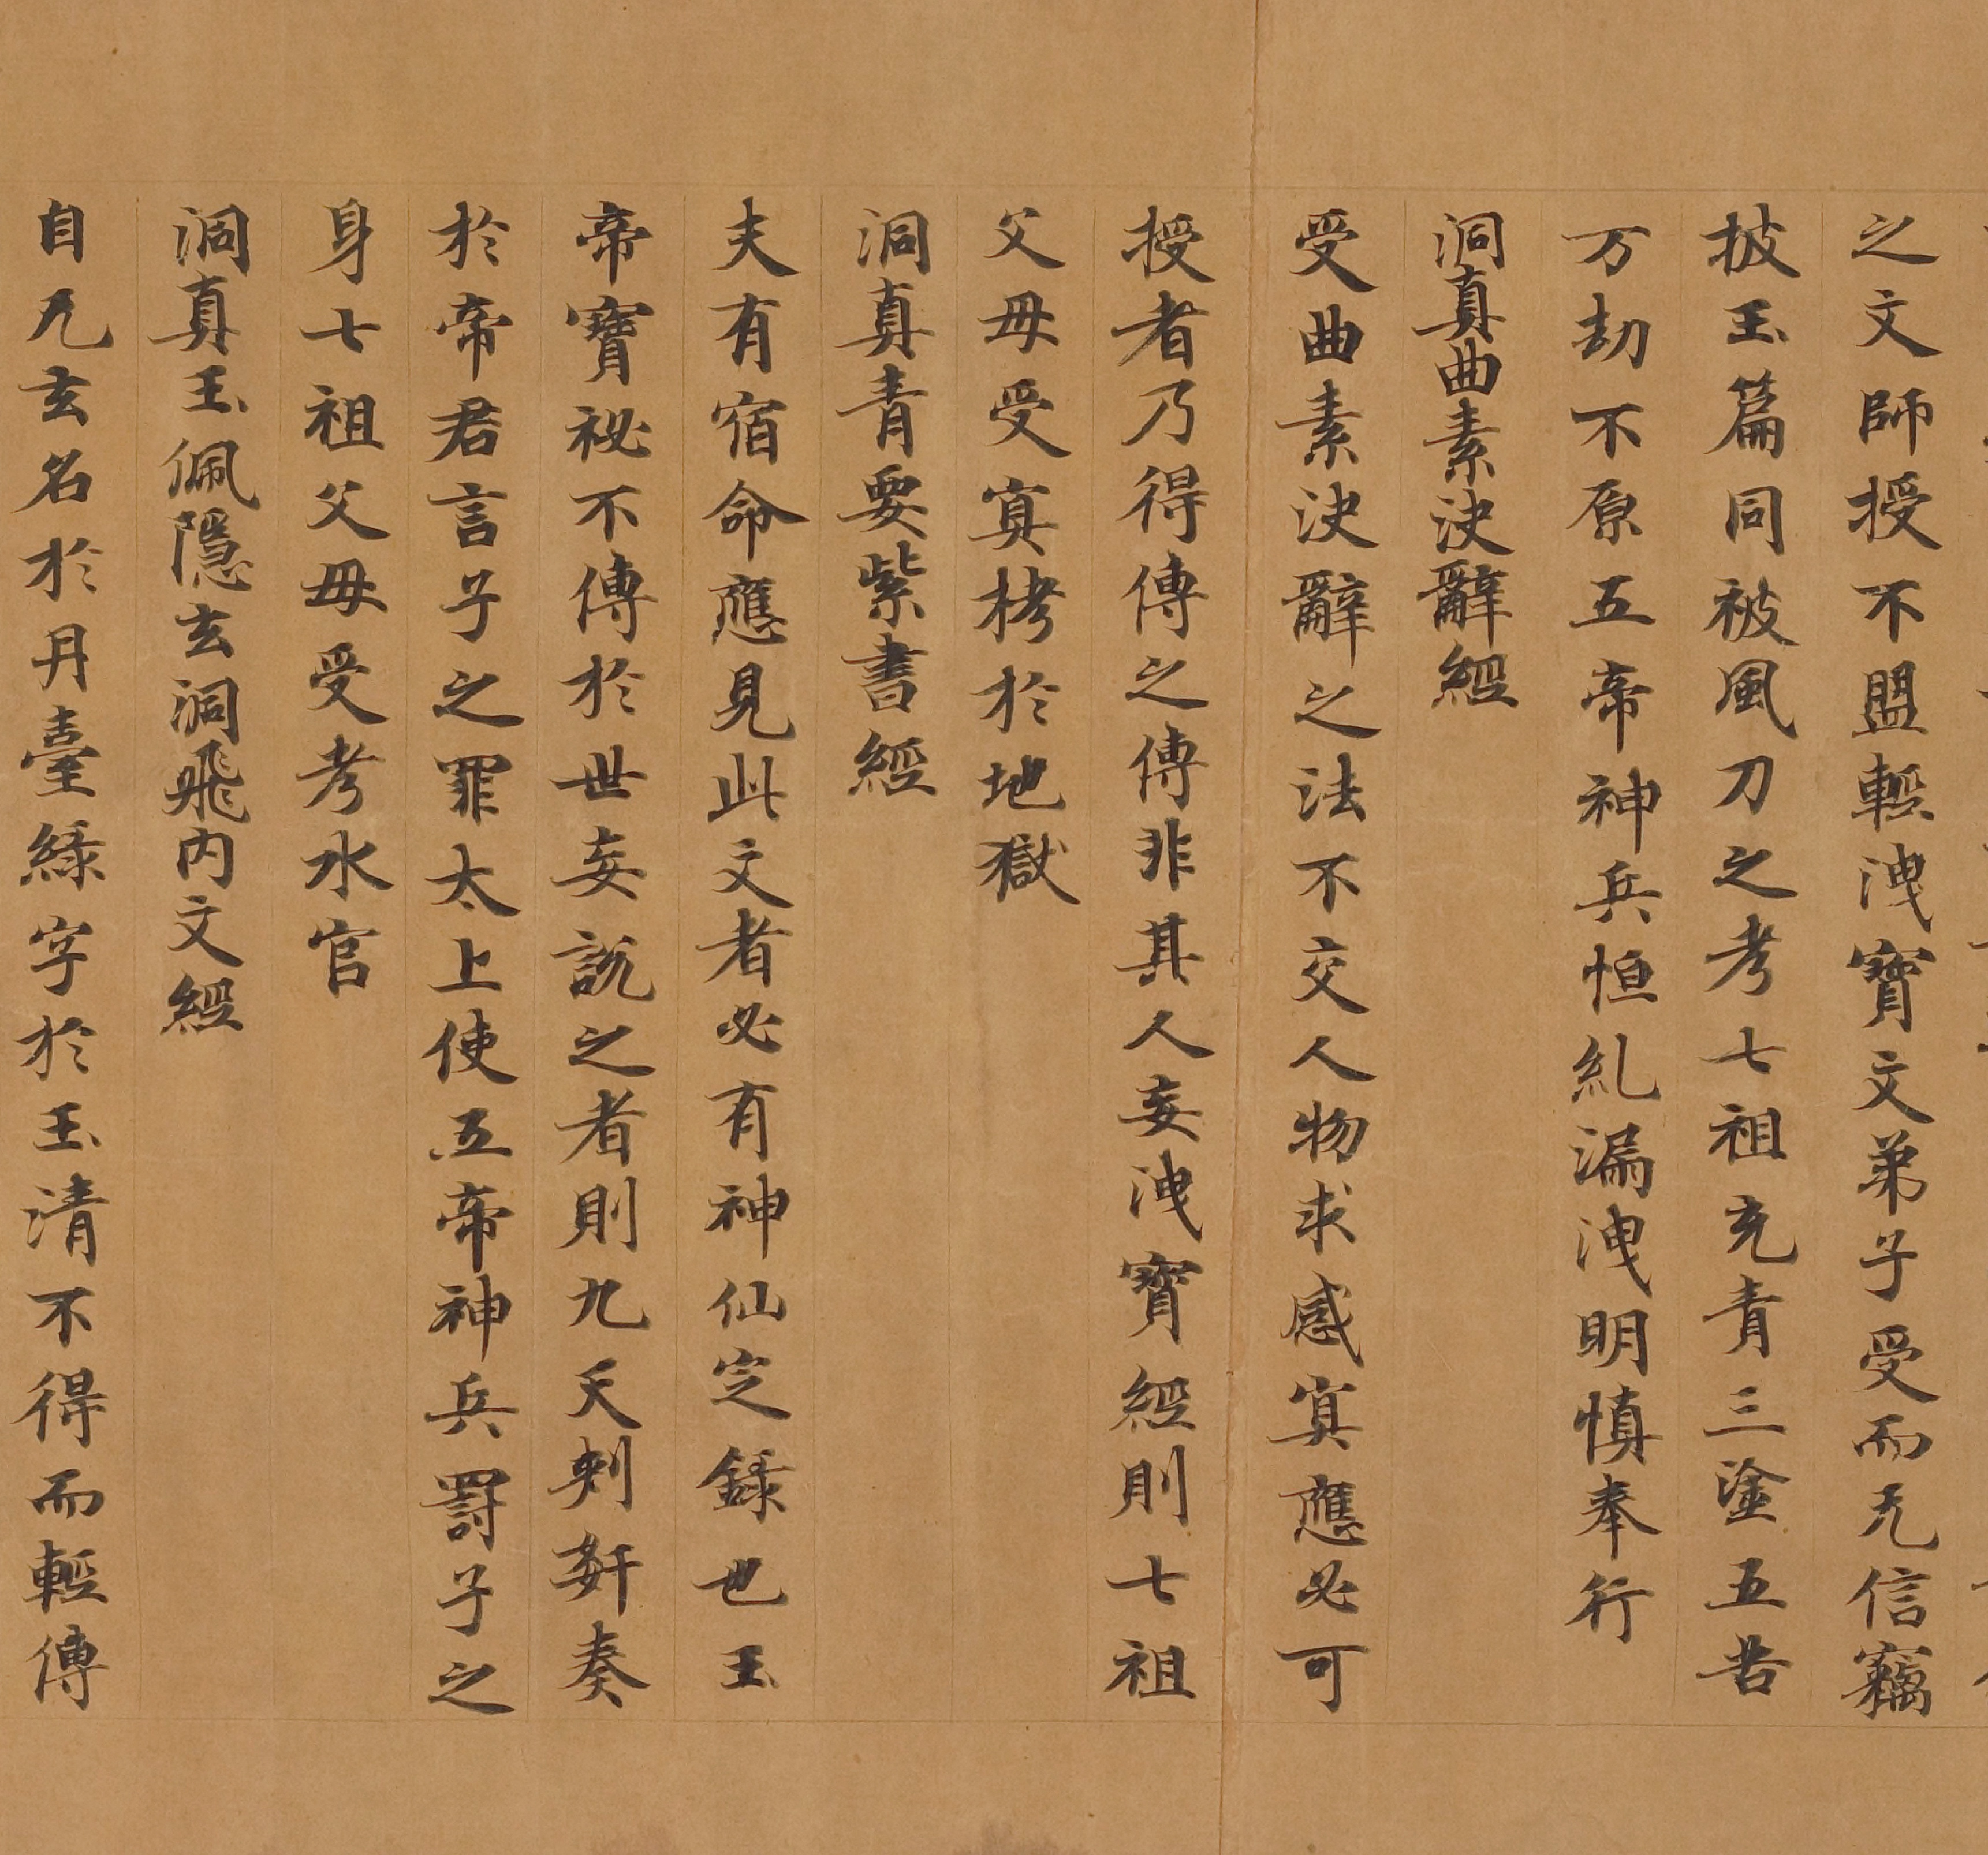 之文師授不盟輕洩寶文弟子受而无信竊
披玉篇同被風刀之考七祖充責三塗五苦
万劫不原五帝神兵恒糺漏洩明慎奉行
洞真曲素決辭經
受曲素決辭之法不交人物求感寘應必可
授者乃得傳之傳非其人妄洩寶經則七祖
父母受寘栲於地獄
洞真青要紫書經
夫有宿命應見此文者必有神仙定録也玉
帝寶祕不傳於世妄說之者則九天刾姧奏
於帝君言子之罪太上使五帝神兵罸子之
身七祖父母受考水官
洞真玉佩隱玄洞飛內文經
自无玄名於丹臺緑字於玉清不得而輕傳